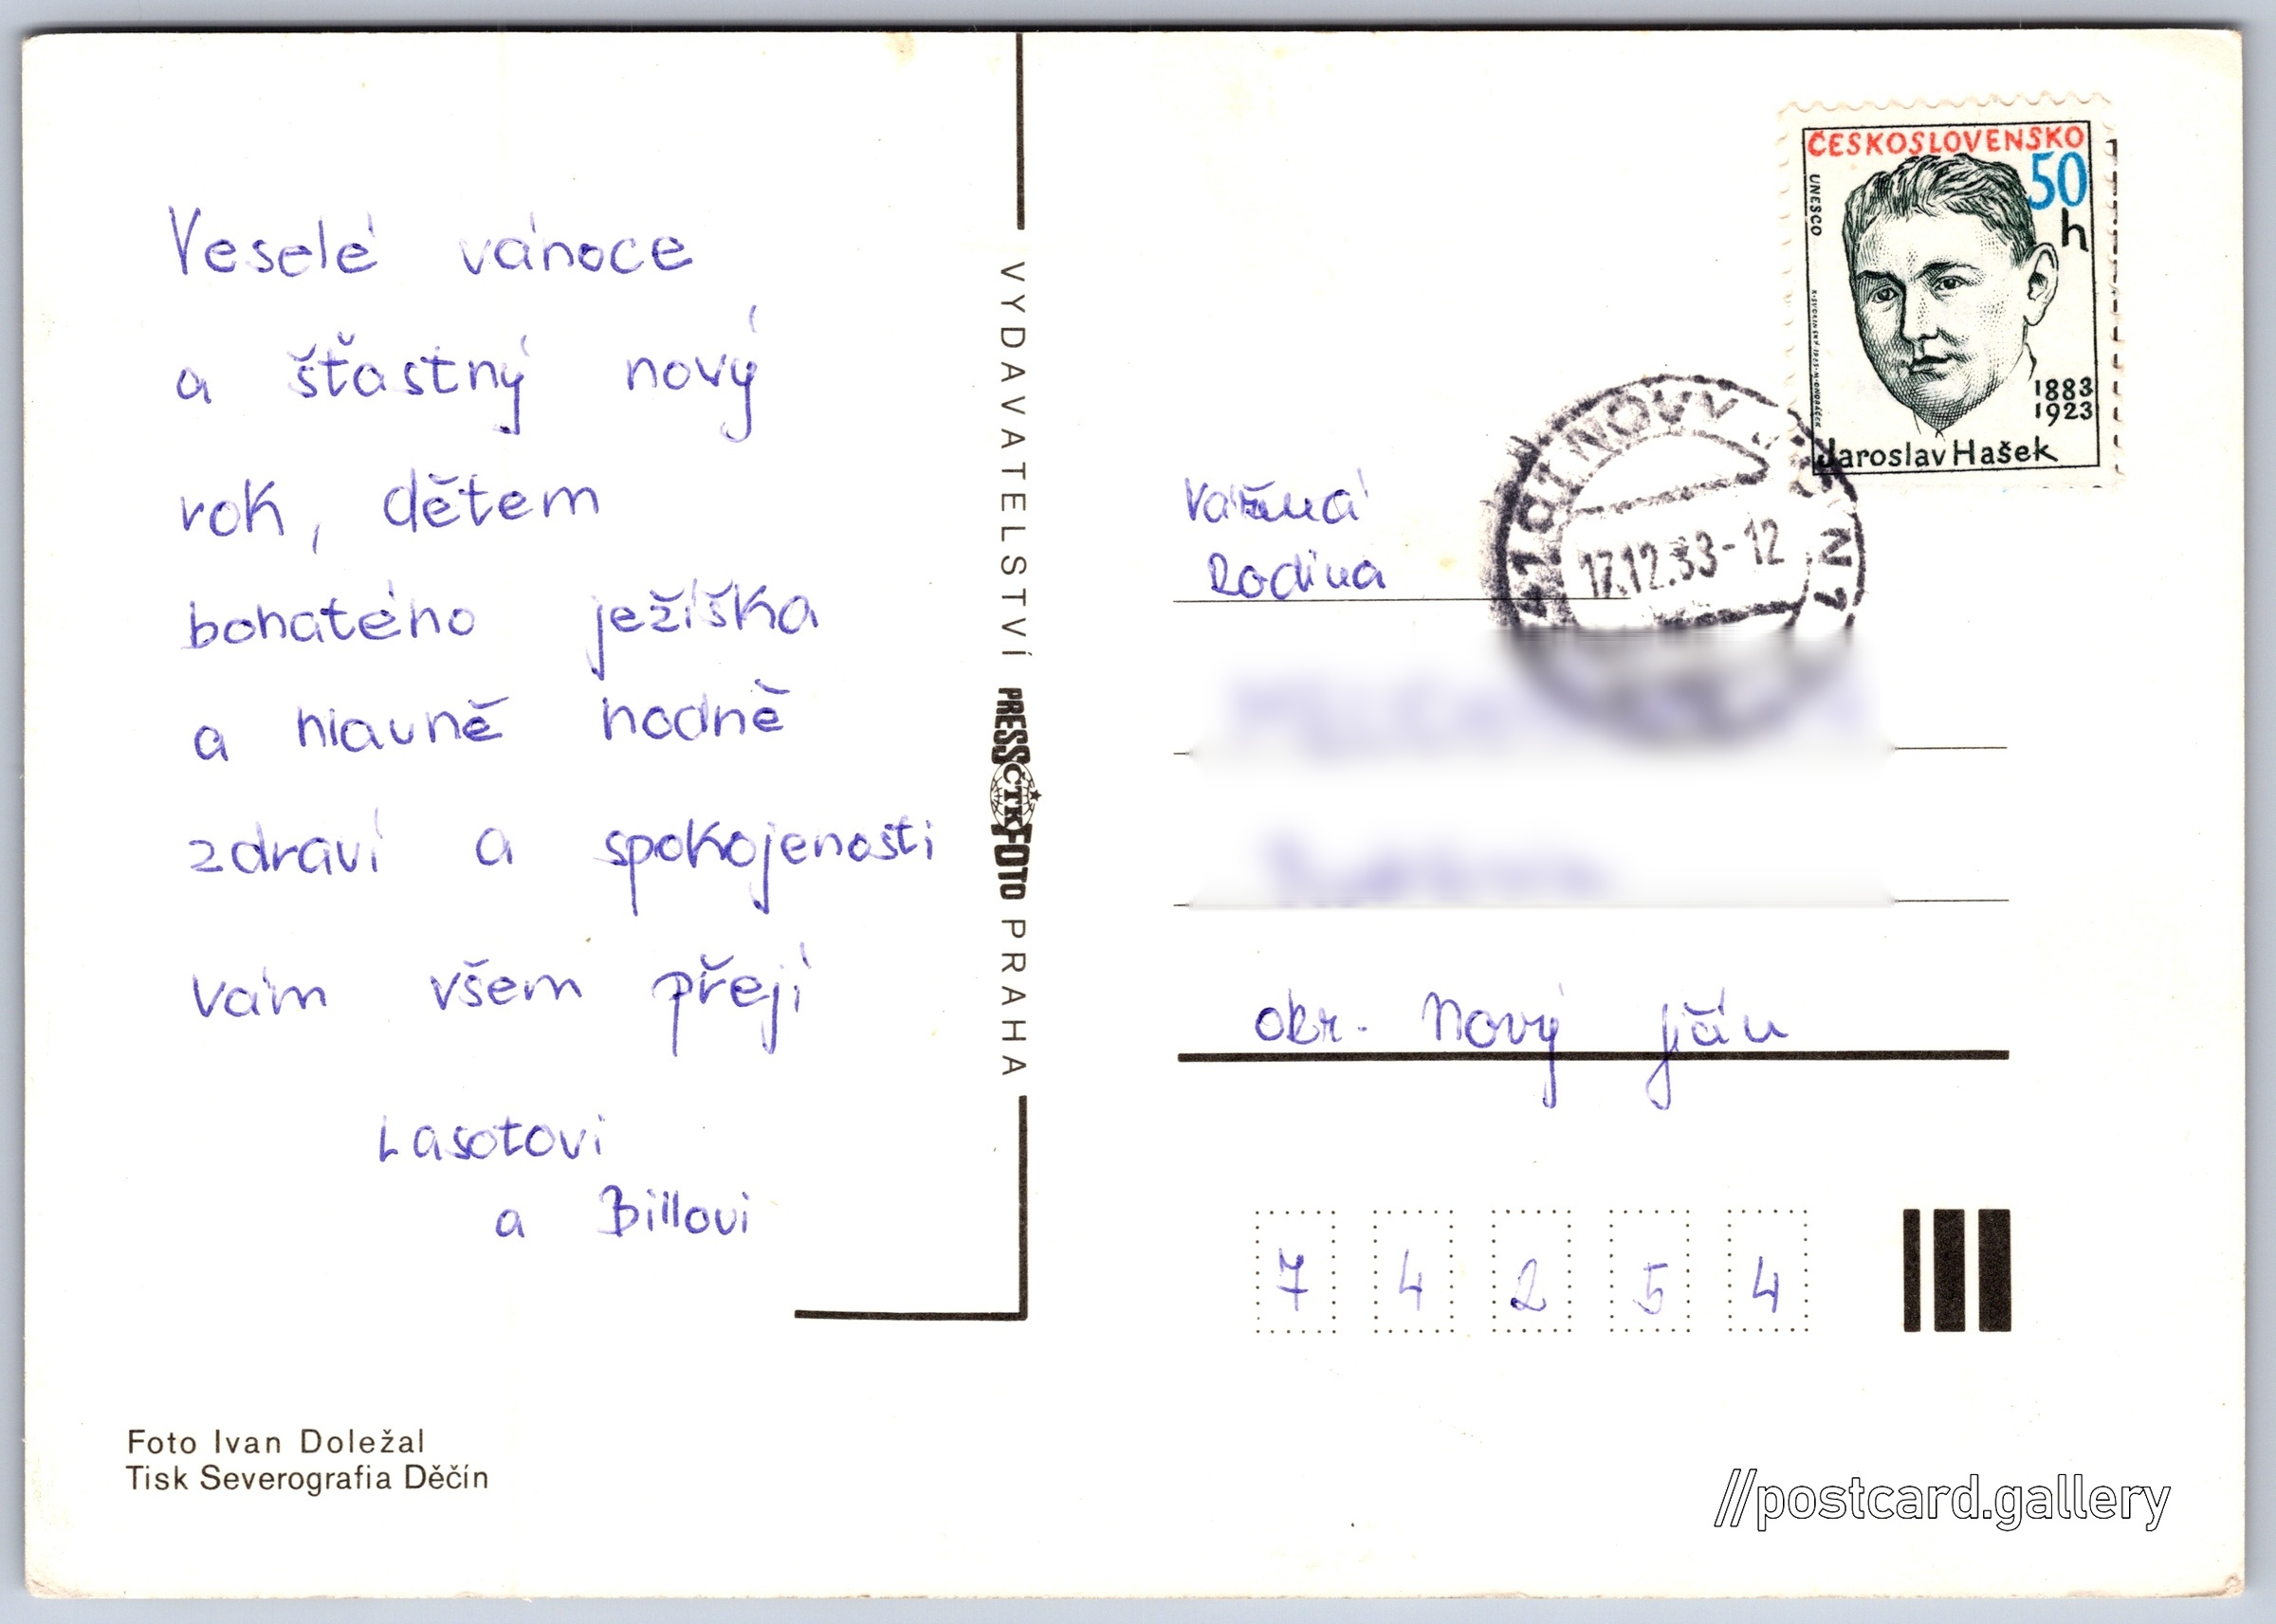 Veselé vánoce
a šťastný nový
rok, dětem
bohatého ježíška
a hlavně hodně
zdraví a spokojenosti
vám všem přejí
Lasotovi
a Billovi
Foto Ivan Doležal
Tisk Severografia Děčín
VYDAVATELSTVÍ PRESSFOTO PRAHA
ČTK
ČESKOSLOVENSKO
50
h
UNESCO
1883
1923
Jaroslav Hašek
NOVÝ
17.12.83-12
Vážená
Rodina
okr. Nový Jičín
7 4 2 5 4
//postcard.gallery